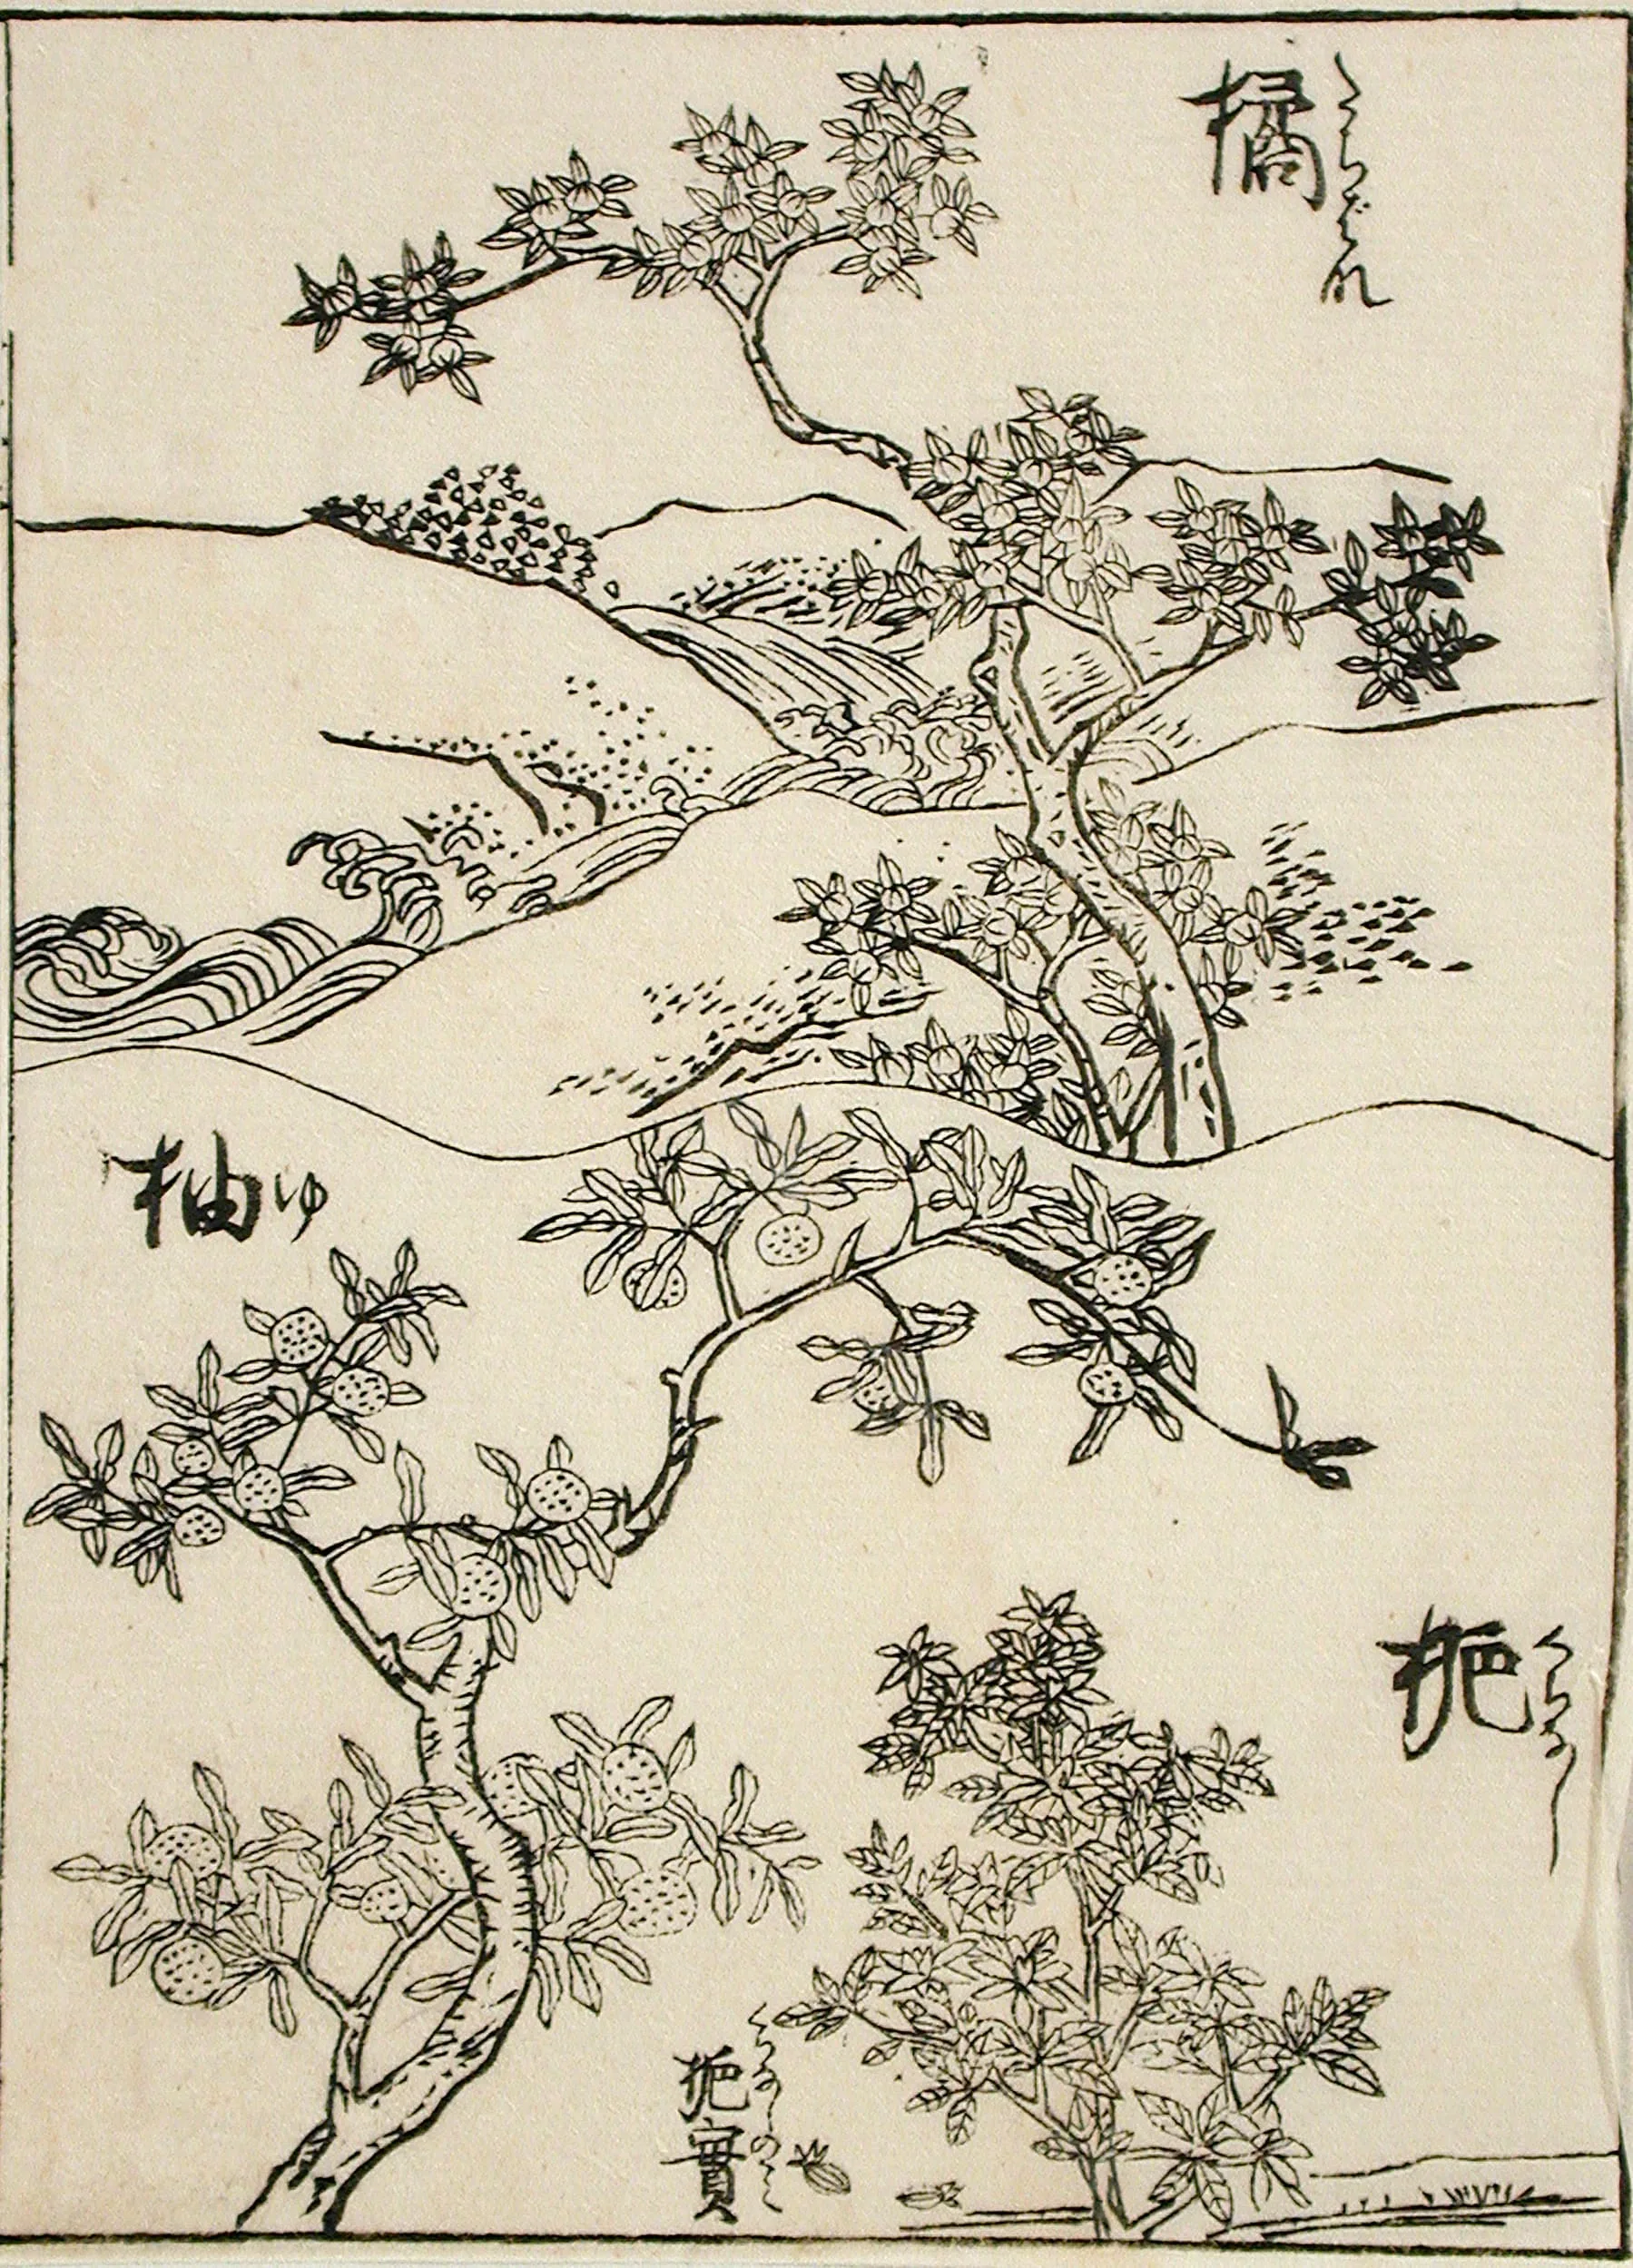 橘
たちばな
柚
ゆ
梔
くちなし
梔實
くちなしのみ